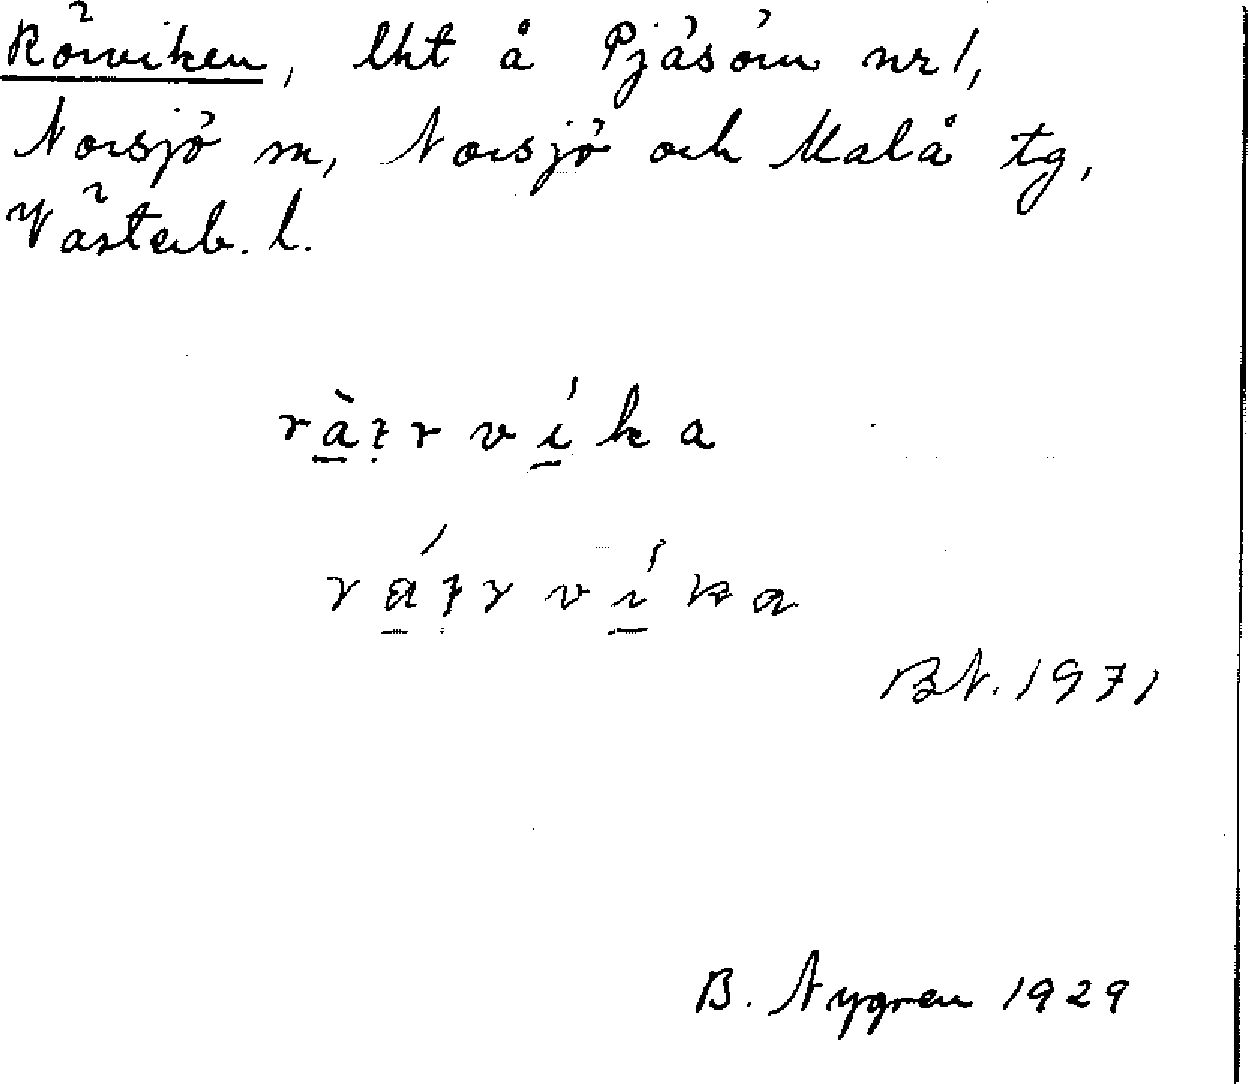 Rörviken, lht å Pjäsörn nr 1,
Norsjö sn, Norsjö och Malå tg,
Västerb. l.
ràzrvíka
rázrvíka
BN. 1971
B. Nygren 1929